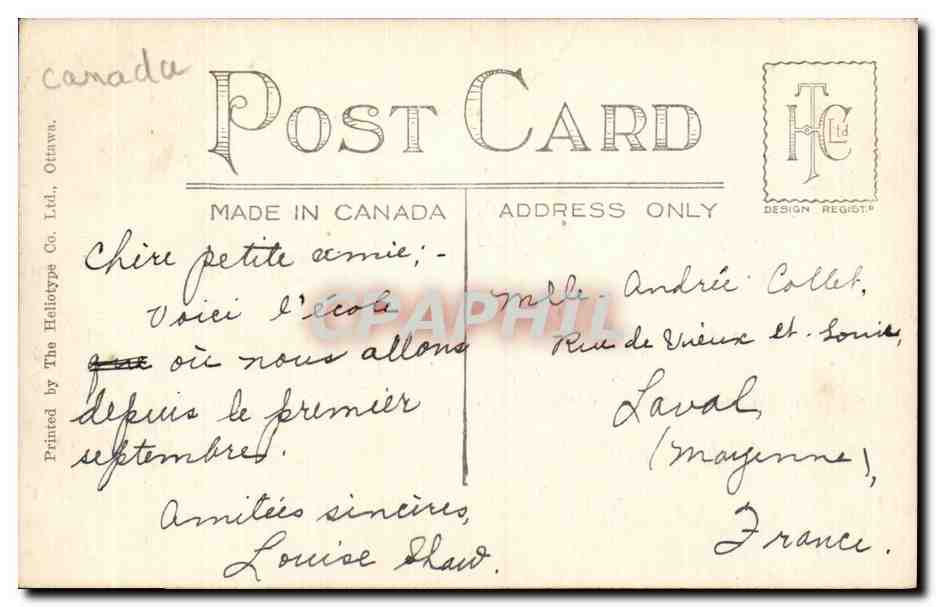 canada
POST CARD
THC Ltd
DESIGN REGIST.D
MADE IN CANADA
ADDRESS ONLY
Printed by The Heliotype Co. Ltd., Ottawa.
CPAPHIL
Chère petite amie; -
Voici l'école
que où nous allons
depuis le premier
septembre.
Amitiés sincères,
Louise Shaw.
Mlle. Andrée Collet,
Rue de Vieux St. Louis,
Laval,
(Mayenne),
France.